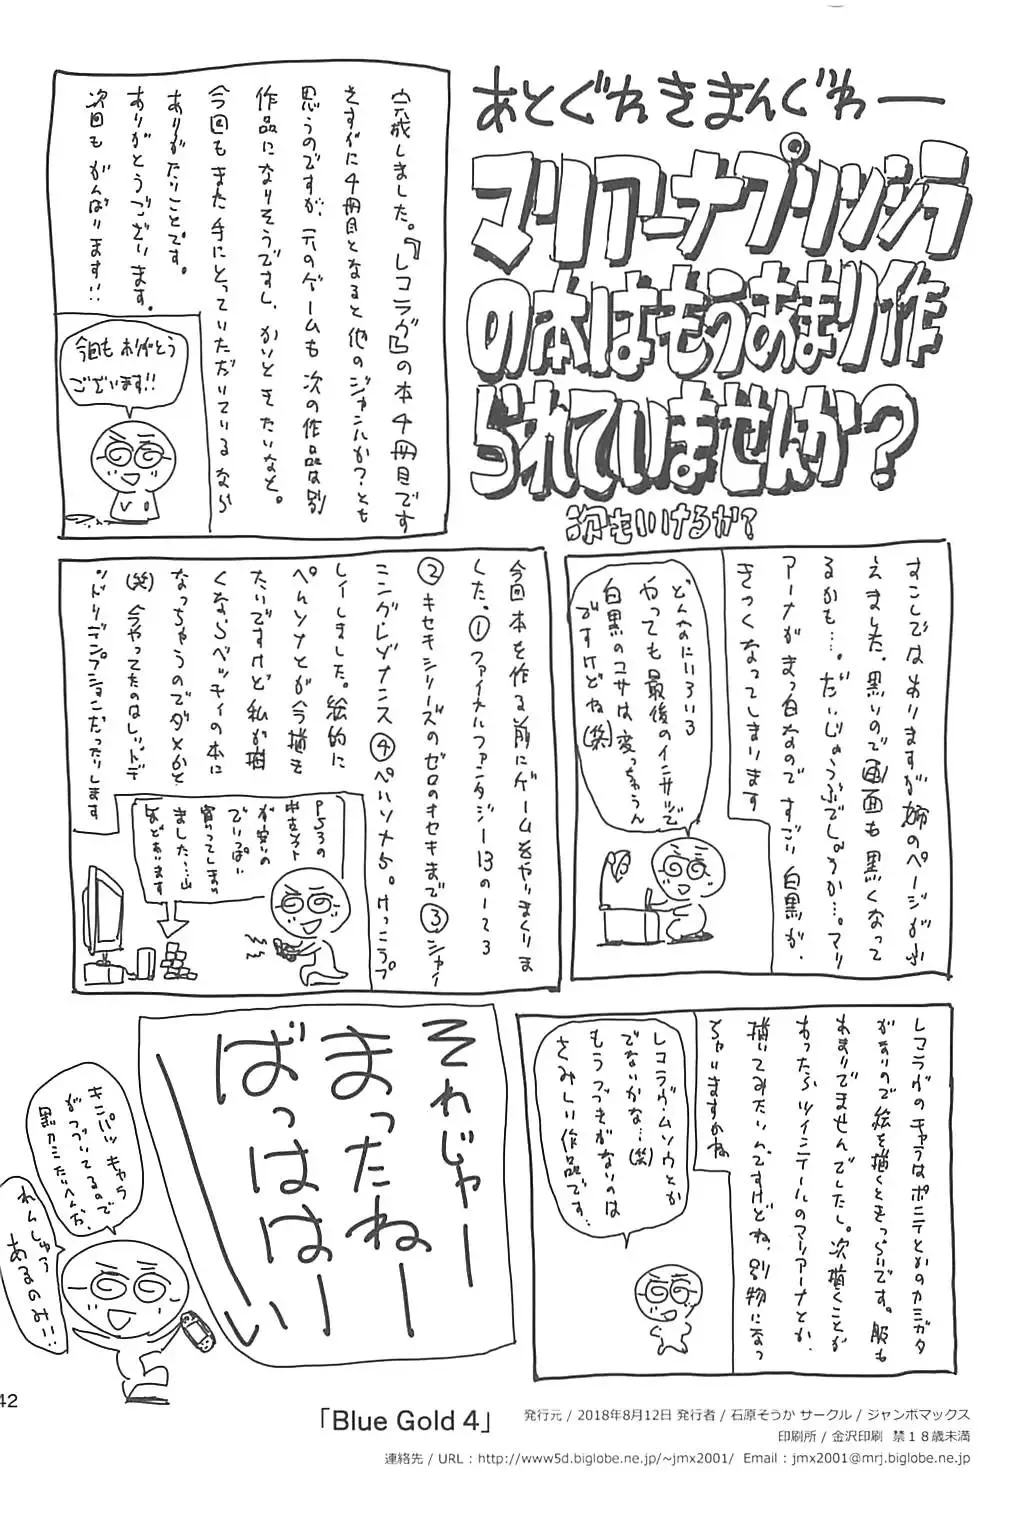 あとぐわきまんぐわー
マリアーナプリンシラ
の本はもうあまり作
られていませんか?
次もいけるか?
完成しました。『レコラヴ』の本4冊目です
さすがに4冊目となると他のジャンルか?とも
思うのですが、元のゲームも次の作品は別
作品になりそうですし、かいときたいなと。
今回もまた手にとっていただいているなら
ありがたいことです。
ありがとうございます。
次回もがんばります!!
今回もありがとう
ございます!!
すこしではありますが姉のページがふ
えました。黒いので画面も黒くなって
るかも…。だいじょうぶでしょうか…。マリ
アーナがまっ白なのですごい白黒が、
きつくなってしまいます
どんなにいろいろ
やっても最後のインサツで
白黒のコサは変っちゃうん
ですけどね(笑)
今回本を作る前にゲームをやりまくりま
した。①ファイナルファンタジー13の1〜3
②キセキシリーズのゼロのキセキまで③シャイ
ニング・レゾナンス④ペルソナ5。けっこうプ
レイしました。絵的に
ぺルソナとか今描き
たいですけど私が描
くならベッティの本に
なっちゃうのでダメかと
(笑)今やってたのはレッドデ
ッドリデンプションだったりします
PS3の
中古ソフト
が安いの
でいっぱい
買ってしまい
ました…山
ほどあります
レコラヴのキャラはポニテとかのカミガタ
がないので絵を描くときつらいです。服も
あまりでませんでした。次描くことが
あったらツインテールのマリアーナとか、
描いてみたいんですけどね、別物になっ
ちゃいますかね
レコラヴ・ムソウとか
でないかな…(笑)
もうつづきがないのは
さみしい作品です…
それじゃー
まったねー
ばっははーい
キンパツキャラ
がつづいてるので
黒カミたいへんだ、
れんしゅう
あるのみ!!
42
「Blue Gold 4」
発行元 / 2018年8月12日 発行者 / 石原そうか サークル / ジャンボマックス
印刷所 / 金沢印刷 禁18歳未満
連絡先 / URL : http://www5d.biglobe.ne.jp/~jmx2001/ Email : jmx2001@mrj.biglobe.ne.jp